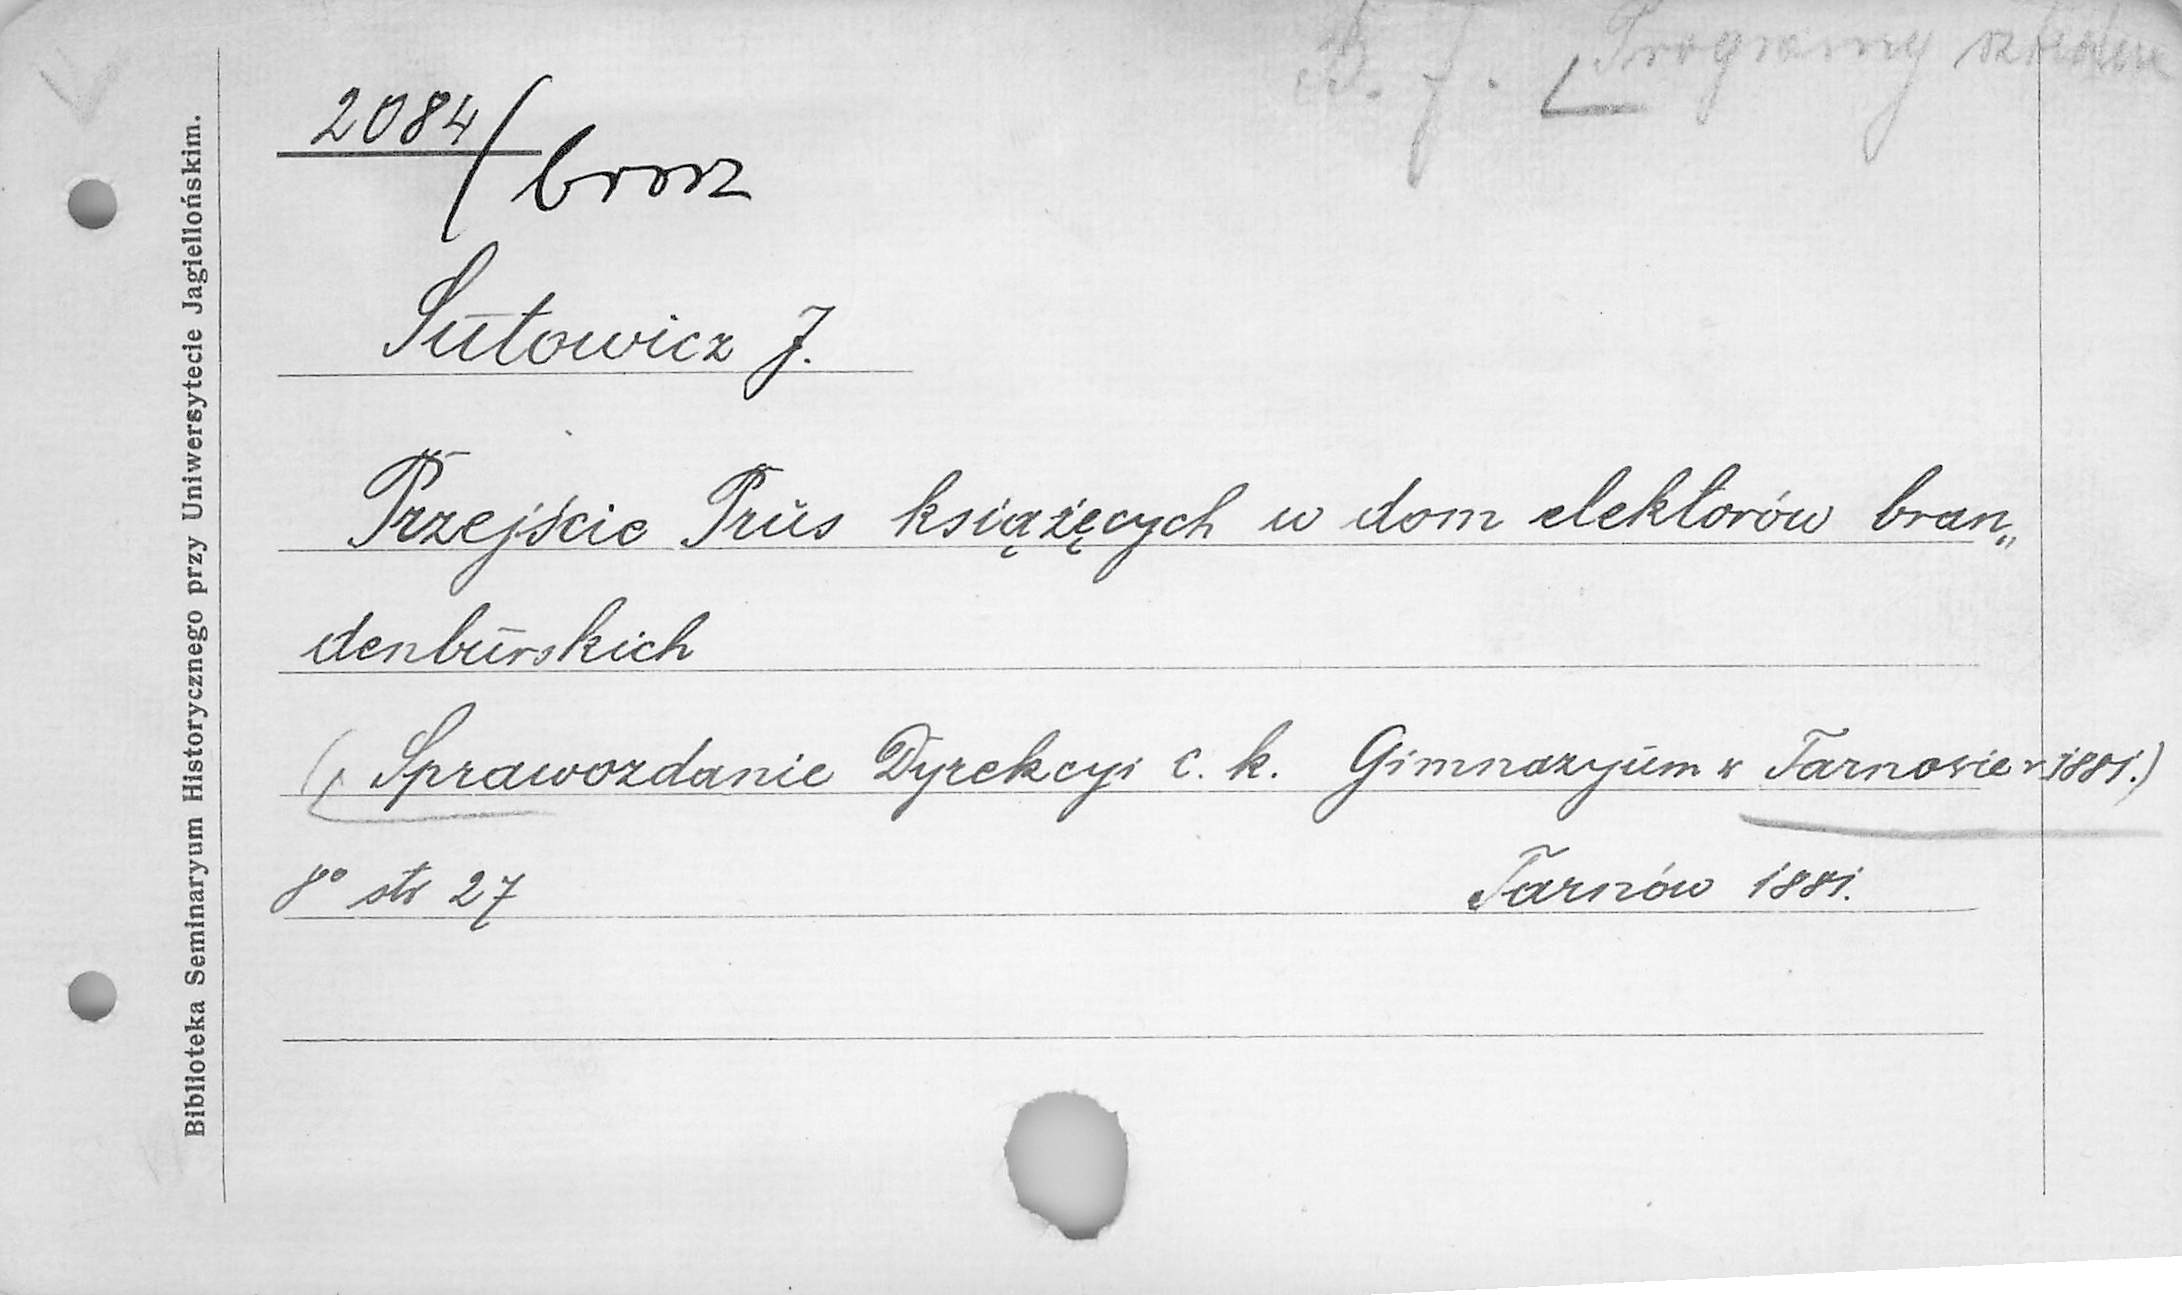 B. f. Programy szkolne
2084/brosz
Sutowicz J.
Przejście Prus książęcych w dom elektorów bran„
denburskich
(Sprawozdanie Dyrekcyi c. k. Gimnazyum w Tarnowie r 1881.)
8° str 27 Tarnów 1881.
Biblioteka Seminaryum Historycznego przy Uniwersytecie Jagiellońskim.